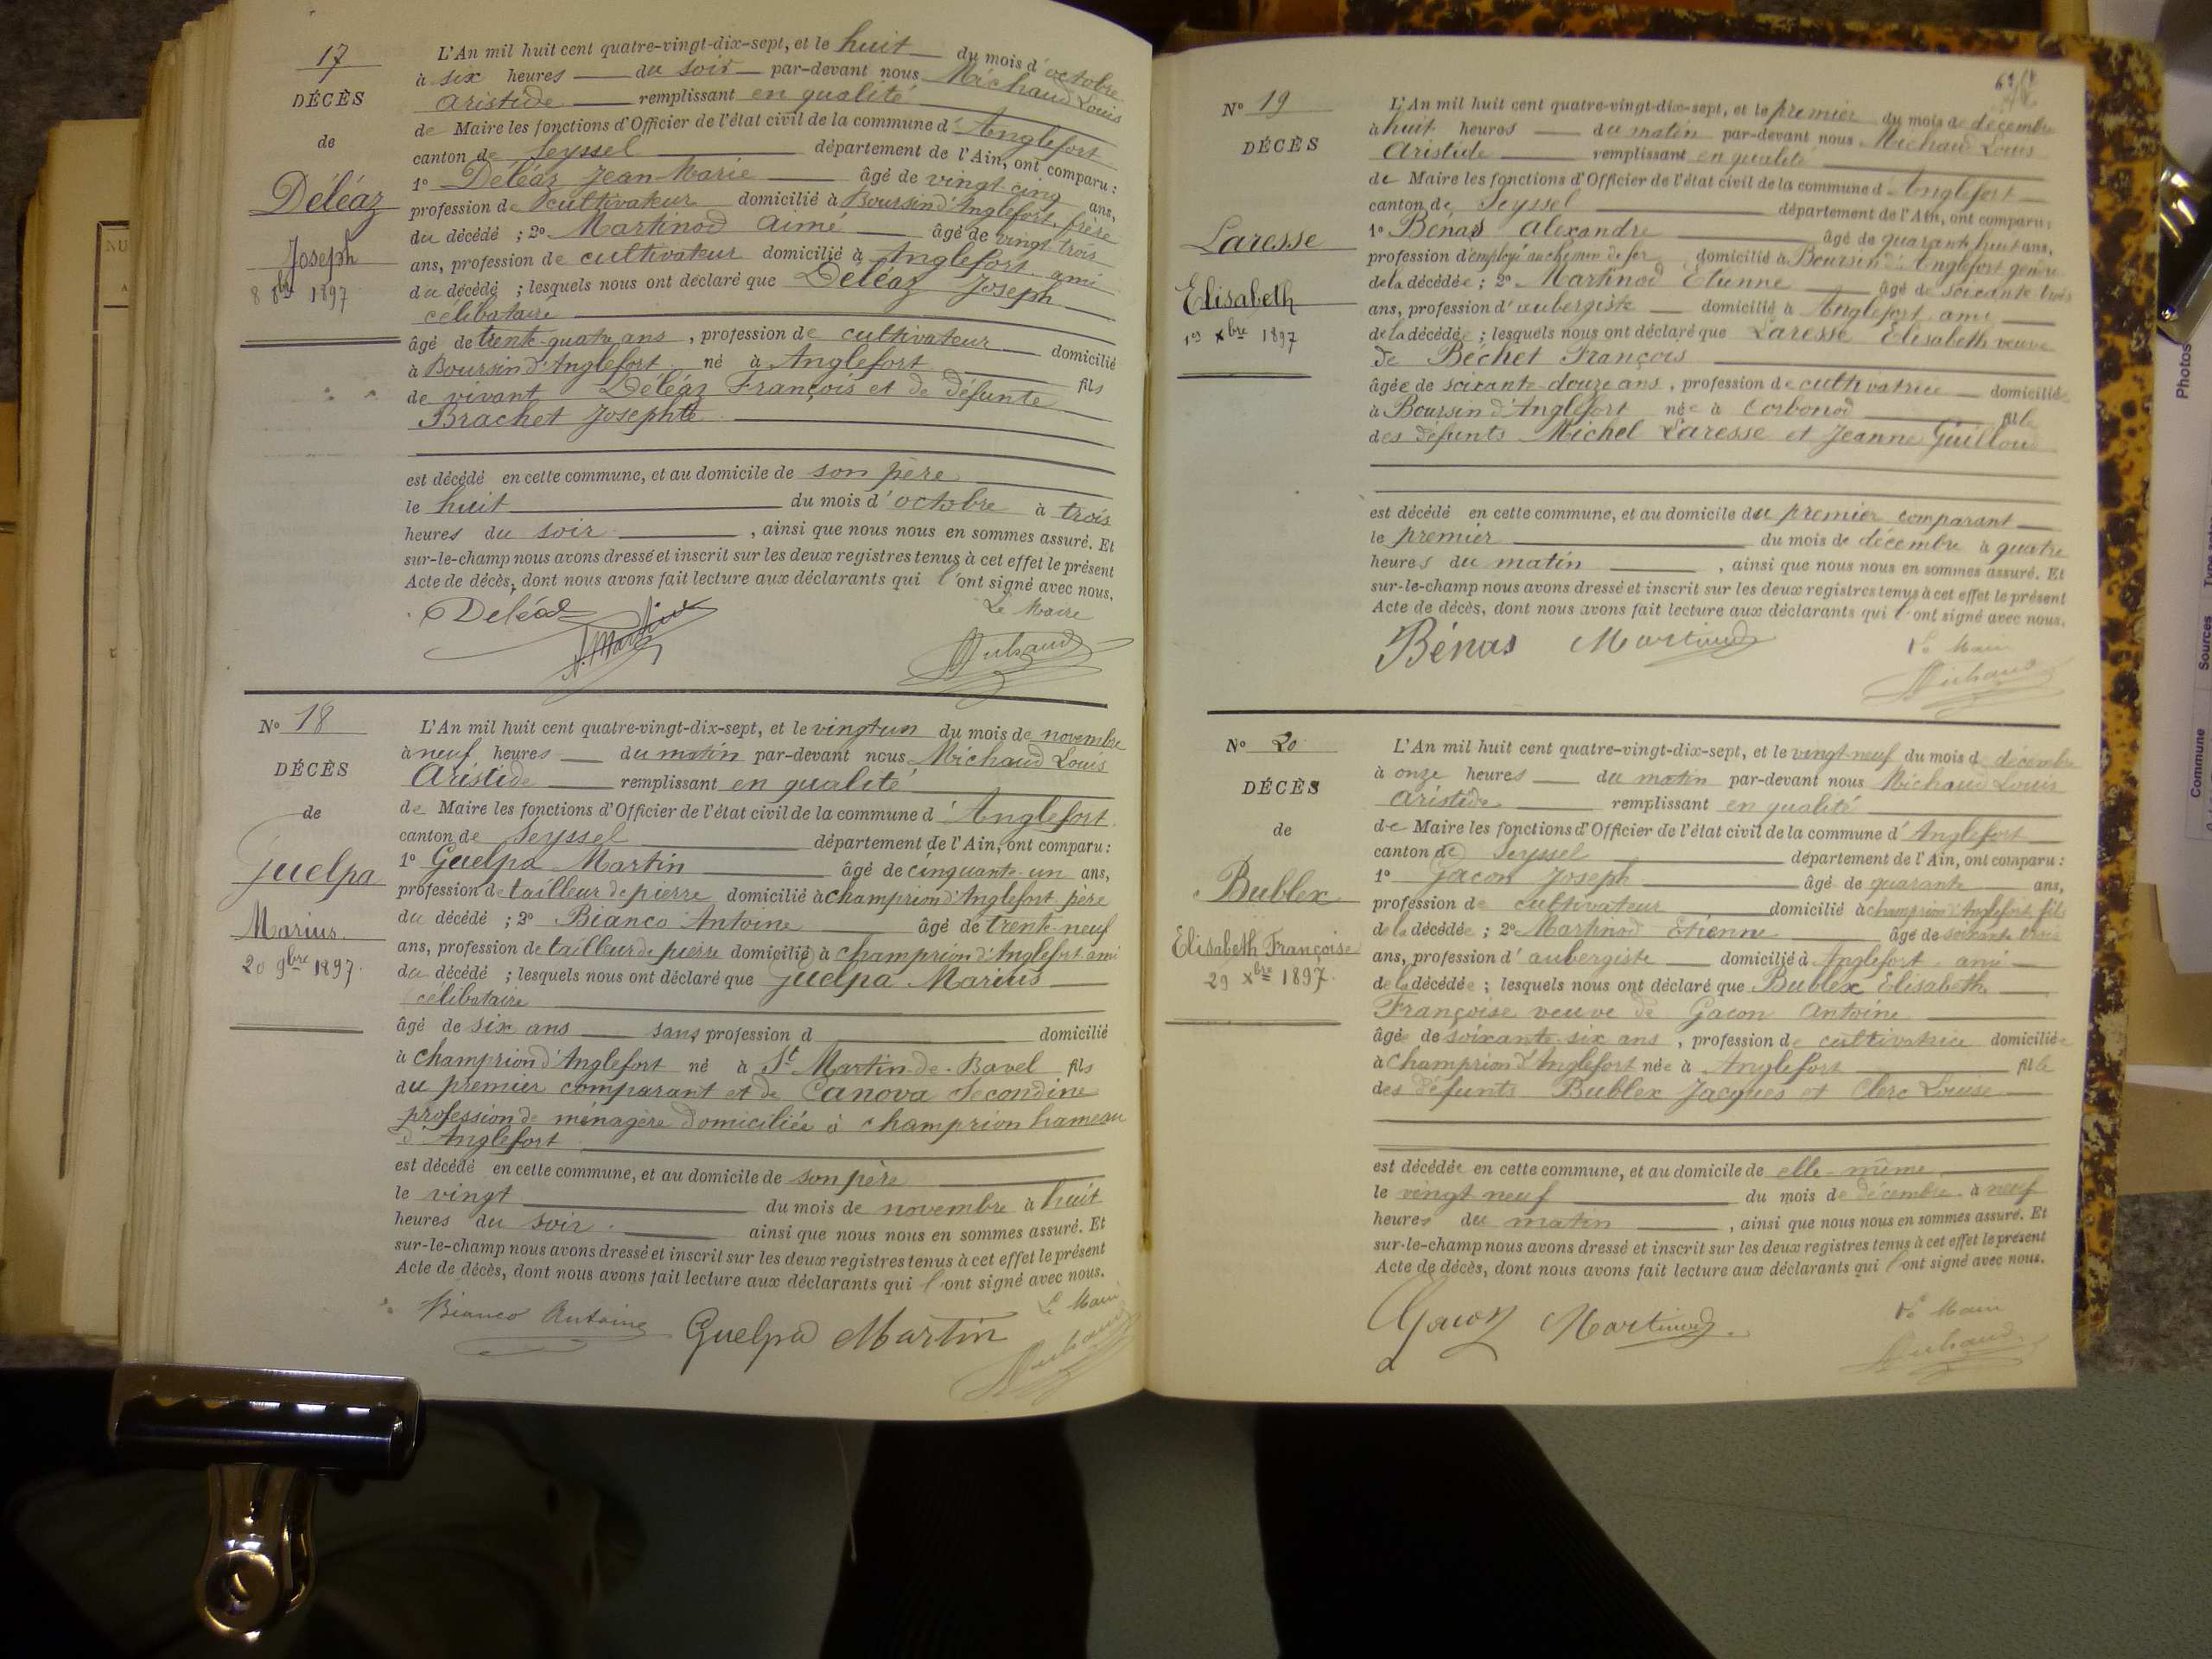 17
DÉCÈS
de
Déléaz
Joseph
8 8bre 1897
L'An mil huit cent quatre-vingt-dix-sept, et le huit du mois d'octobre
à six heures du soir par-devant nous Michaud Louis
Aristide remplissant en qualité
de Maire les fonctions d'Officier de l'état civil de la commune d'Anglefort
canton de Seyssel département de l'Ain, ont comparu :
1o Déléaz Jean-Marie âgé de vingt-cinq ans,
profession de cultivateur domicilié à Boursin d'Anglefort, frère
du décédé ; 2o Martinod Aimé âgé de vingt trois
ans, profession de cultivateur domicilié à Anglefort ami
du décédé ; lesquels nous ont déclaré que Déléaz Joseph
célibataire
âgé de trente-quatre ans , profession de cultivateur domicilié
à Boursin d'Anglefort né à Anglefort fils
de vivant Déléaz François et de défunte
Brachet Josephte
est décédé en cette commune, et au domicile de son père
le huit du mois d'octobre à trois
heures du soir , ainsi que nous nous en sommes assuré. Et
sur-le-champ nous avons dressé et inscrit sur les deux registres tenus à cet effet le présent
Acte de décès, dont nous avons fait lecture aux déclarants qui l'ont signé avec nous.
Le Maire
Deléaz
No 18
DÉCÈS
de
Guelpa
Marius
20 9bre 1897.
L'An mil huit cent quatre-vingt-dix-sept, et le vingt un du mois de novembre
à neuf heures du matin par-devant nous Michaud Louis
Aristide remplissant en qualité
de Maire les fonctions d'Officier de l'état civil de la commune d'Anglefort
canton de Seyssel département de l'Ain, ont comparu :
1o Guelpa Martin âgé de cinquante-un ans,
profession de tailleur de pierre domicilié à champrion d'Anglefort père
du décédé ; 2o Bianco Antoine âgé de trente-neuf
ans, profession de tailleur de pierre domicilié à champrion d'Anglefort ami
du décédé ; lesquels nous ont déclaré que Guelpa Marius
célibataire
âgé de six ans sans profession d domicilié
à champrion d'Anglefort né à St Martin-de-Bavel fils
du premier comparant et de Canova Secondine
profession de ménagère domiciliée à champrion hameau
d'Anglefort
est décédé en cette commune, et au domicile de son père
le vingt du mois de novembre à huit
heures du soir . ainsi que nous nous en sommes assuré. Et
sur-le-champ nous avons dressé et inscrit sur les deux registres tenus à cet effet le présent
Acte de décès, dont nous avons fait lecture aux déclarants qui l'ont signé avec nous.
Le Maire
Bianco Antoine Guelpa Martin
No 19
DÉCÈS
Laresse
Elisabeth
1er Xbre 1897
L'An mil huit cent quatre-vingt-dix-sept, et le premier du mois de décembre
à huit heures du matin par-devant nous Michaud Louis
Aristide remplissant en qualité
de Maire les fonctions d'Officier de l'état civil de la commune d'Anglefort
canton de Seyssel département de l'Ain, ont comparu :
1o Bénas Alexandre âgé de quarante huit ans,
profession d'employé au chemin de fer domicilié à Boursin d'Anglefort gendre
de la décédée ; 2o Martinod Etienne âgé de soixante trois
ans, profession d'aubergiste domicilié à Anglefort ami
de la décédée ; lesquels nous ont déclaré que Laresse Elisabeth veuve
de Béchet François
âgée de soixante-douze ans , profession de cultivatrice domiciliée
à Boursin d'Anglefort née à Corbonod fille
des défunts Michel Laresse et Jeanne Guilloud
est décédé en cette commune, et au domicile du premier comparant
le premier du mois de décembre à quatre
heures du matin , ainsi que nous nous en sommes assuré. Et
sur-le-champ nous avons dressé et inscrit sur les deux registres tenus à cet effet le présent
Acte de décès, dont nous avons fait lecture aux déclarants qui l'ont signé avec nous.
Bénas Martinod
Le Maire
No 20
DÉCÈS
de
Bublex
Elisabeth Françoise
29 Xbre 1897.
L'An mil huit cent quatre-vingt-dix-sept, et le vingt-neuf du mois d décembre
à onze heures du matin par-devant nous Michaud Louis
Aristide remplissant en qualité
de Maire les fonctions d'Officier de l'état civil de la commune d'Anglefort
canton de Seyssel département de l'Ain, ont comparu :
1o Gacon Joseph âgé de quarante ans,
profession de cultivateur domicilié à champrion d'Anglefort fils
de la décédée ; 2o Martinod Etienne âgé de soixante trois
ans, profession d'aubergiste domicilié à Anglefort ami
de la décédée ; lesquels nous ont déclaré que Bublex Elisabeth
Françoise veuve de Gacon Antoine
âgée de soixante-six ans , profession de cultivatrice domiciliée
à champrion d'Anglefort née à Anglefort fille
des défunts Bublex Jacques et Clerc Louise
est décédée en cette commune, et au domicile de elle-même
le vingt neuf du mois de décembre à neuf
heures du matin , ainsi que nous nous en sommes assuré. Et
sur-le-champ nous avons dressé et inscrit sur les deux registres tenus à cet effet le présent
Acte de décès, dont nous avons fait lecture aux déclarants qui l'ont signé avec nous.
Gacon Martinod
Le Maire
Photos
Commune Sources